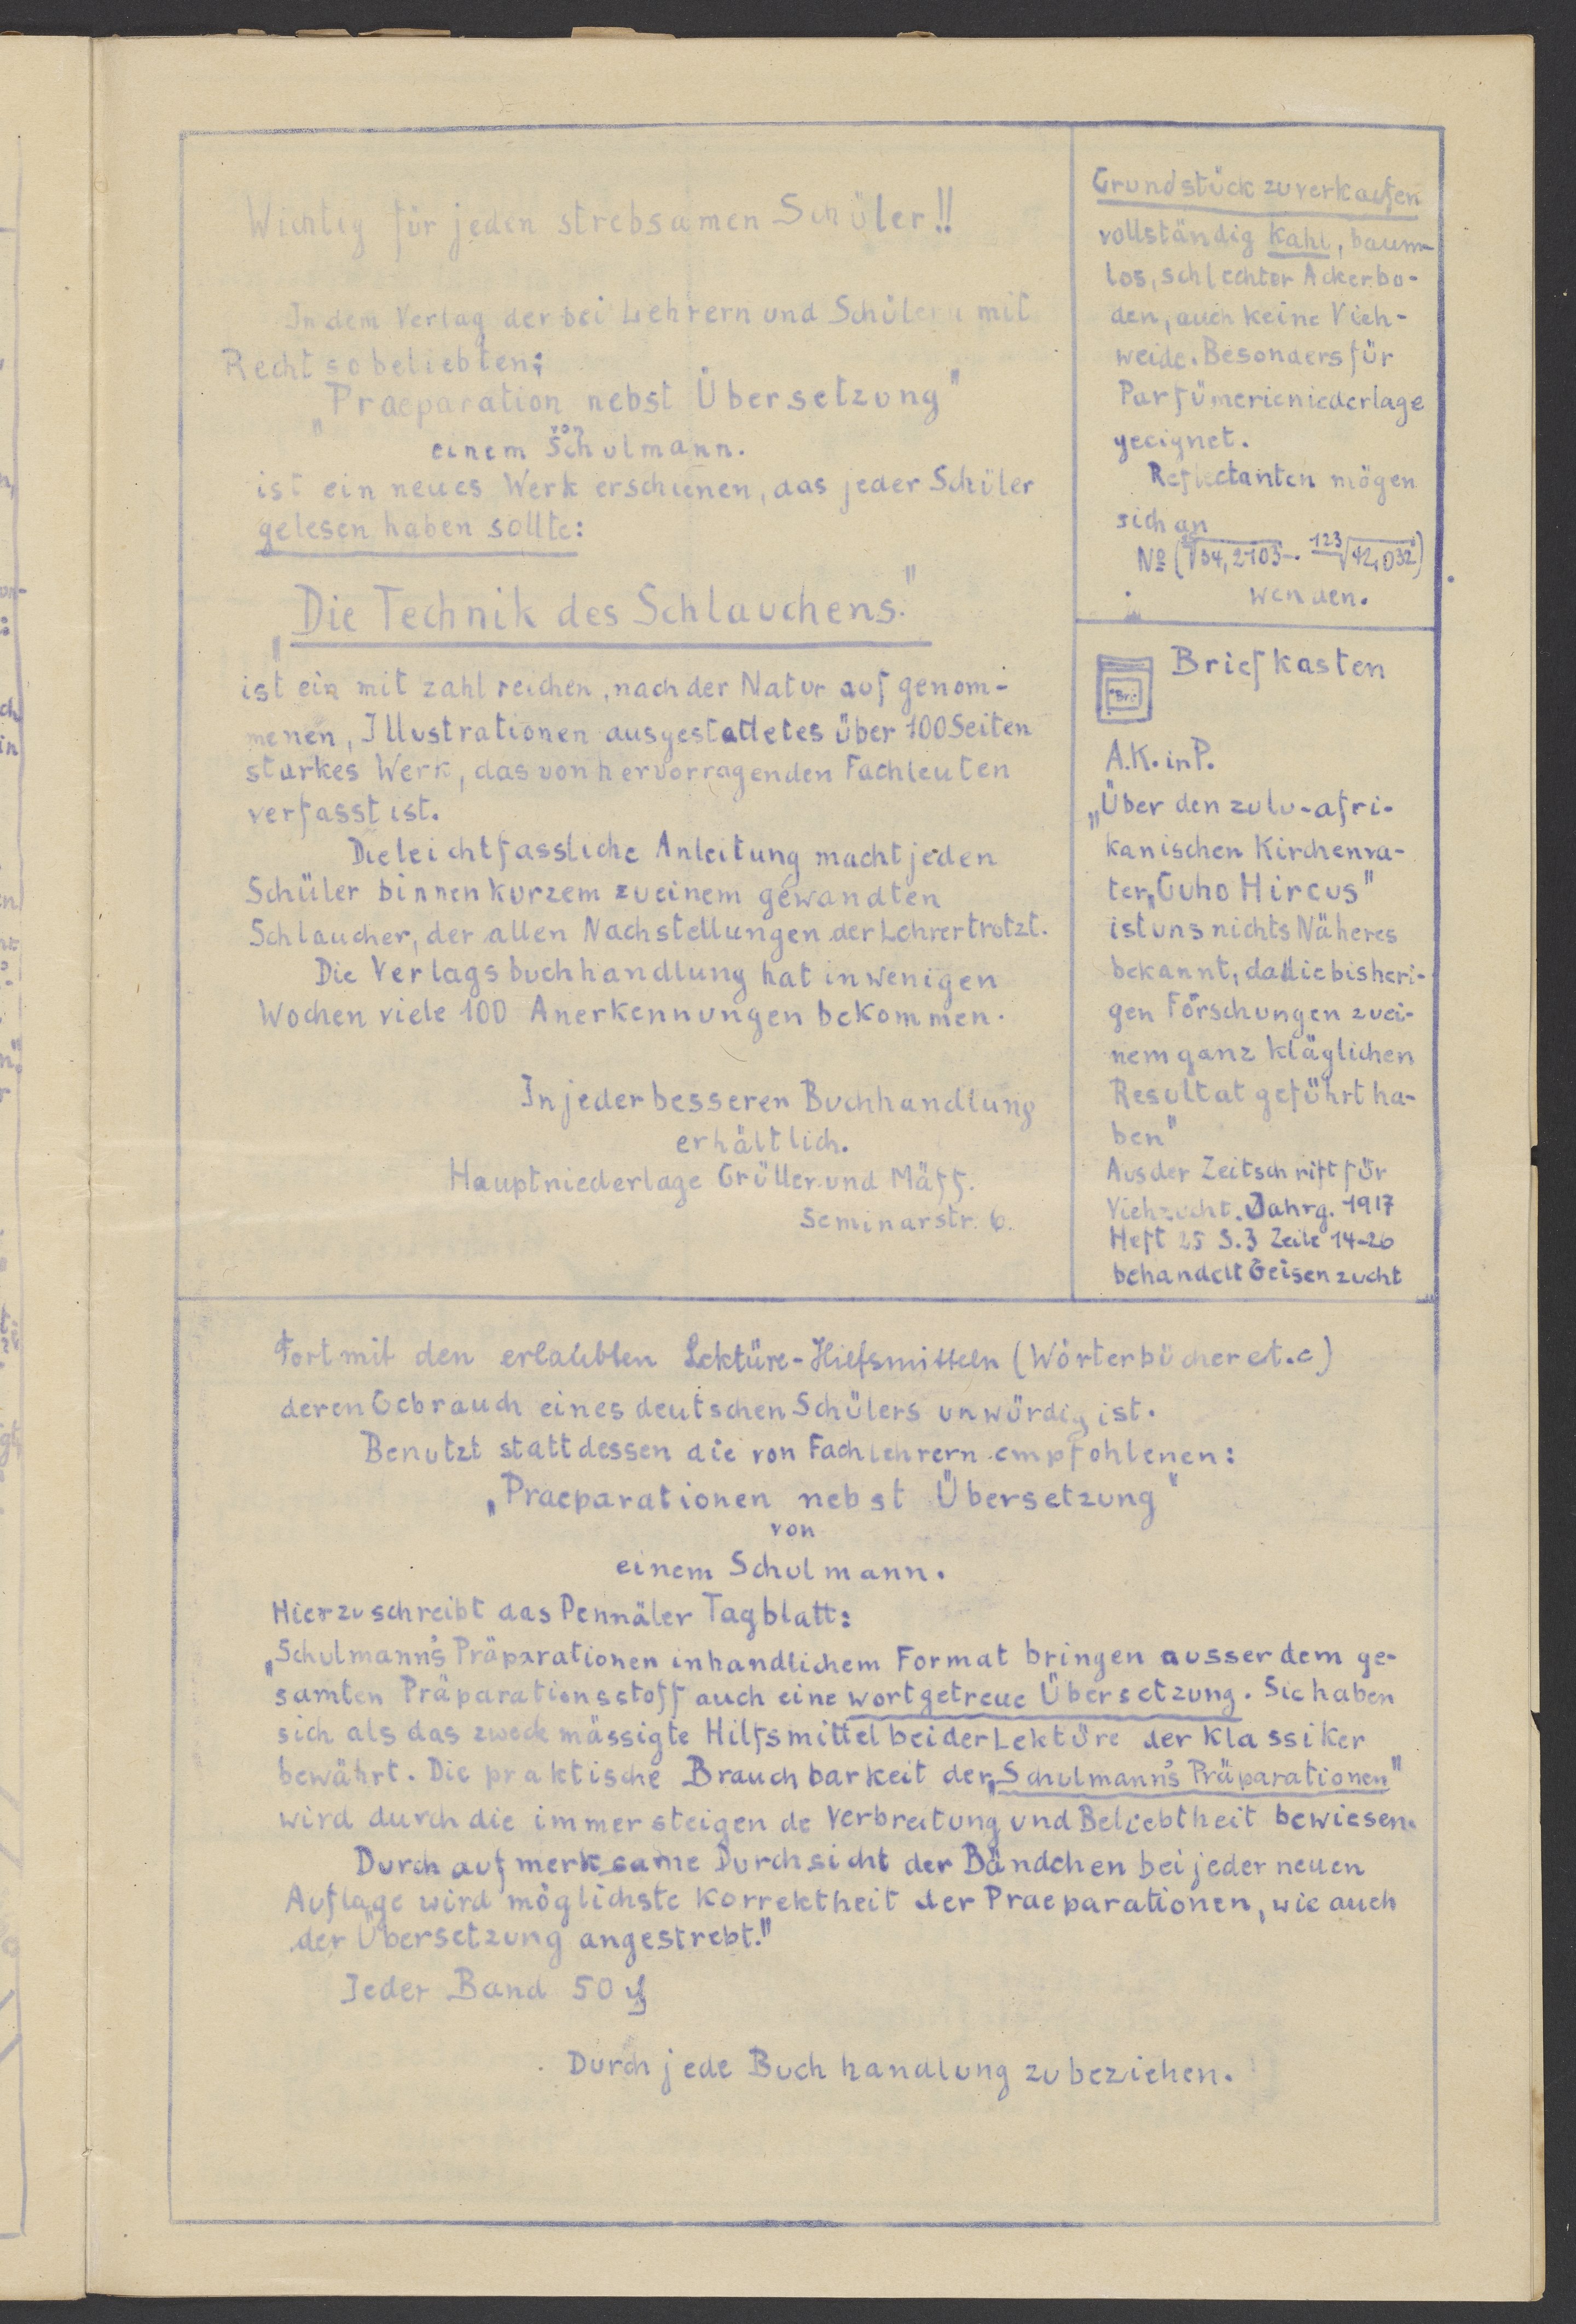 Wichtig für jeden strebsamen Schüler!!
In dem Verlag der bei Lehrern und Schülern mit
Recht so beliebten:
„Praeparation nebst Übersetzung"
von
einem Schulmann.
ist ein neues Werk erschienen, das jeder Schüler
gelesen haben sollte:
„Die Technik des Schlauchens."
ist ein mit zahlreichen, nach der Natur aufgenom-
menen, Illustrationen ausgestattetes über 100 Seiten
starkes Werk, das von hervorragenden Fachleuten
verfasst ist.
Die leichtfassliche Anleitung macht jeden
Schüler binnen kurzem zu einem gewandten
Schlaucher, der allen Nachstellungen der Lehrer trotzt.
Die Verlagsbuchhandlung hat in wenigen
Wochen viele 100 Anerkennungen bekommen.
In jeder besseren Buchhandlung
erhältlich.
Hauptniederlage Grüller und Mäff.
Seminarstr. 6.
Grundstück zu verkaufen
vollständig kahl, baum-
los, schlechter Ackerbo-
den, auch keine Vieh-
weide. Besonders für
Parfümerieniederlage
geeignet.
Reflectanten mögen
sich an
№ (√34,2103 - 123√42,032)
wenden.
Briefkasten
A.K. in P.
„Über den zulu-afri-
kanischen Kirchenva-
ter „Guho Hircus"
ist uns nichts Näheres
bekannt, da die bisheri-
gen Forschungen zu ei-
nem ganz kläglichen
Resultat geführt ha-
ben"
Aus der Zeitschrift für
Viehzucht. Jahrg. 1917
Heft 25 S.3 Zeile 14-26
behandelt Geisenzucht
Fort mit den erlaubten Lektüre-Hilfsmitteln (Wörterbücher et.c)
deren Gebrauch eines deutschen Schülers unwürdig ist.
Benutzt statt dessen die von Fachlehrern empfohlenen:
„Praeparationen nebst Übersetzung"
von
einem Schulmann.
Hierzu schreibt das Pennäler Tagblatt:
„Schulmann's Präparationen in handlichem Format bringen ausser dem ge-
samten Präparationsstoff auch eine wortgetreue Übersetzung. Sie haben
sich als das zweckmässigte Hilfsmittel bei der Lektüre der Klassiker
bewährt. Die praktische Brauchbarkeit der „Schulmann's Präparationen"
wird durch die immer steigende Verbreitung und Beliebtheit bewiesen.
Durch aufmerksame Durchsicht der Bändchen bei jeder neuen
Auflage wird möglichste Korrektheit der Praeparationen, wie auch
der Übersetzung angestrebt."
Jeder Band 50 ₰
Durch jede Buchhandlung zu beziehen.